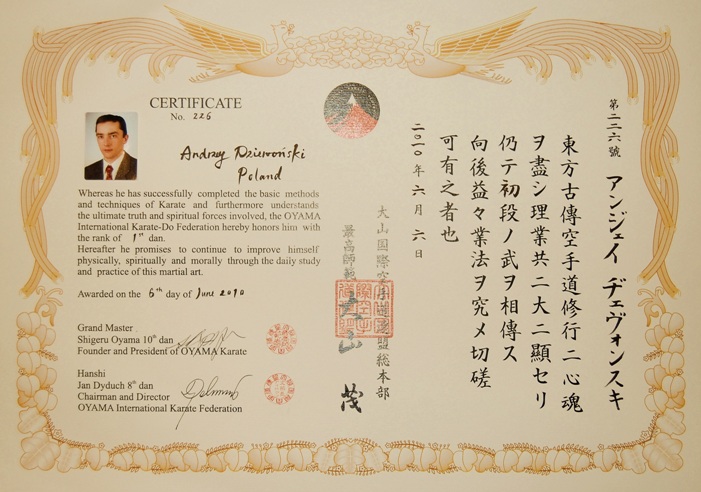 CERTIFICATE
No. 226
Andrzej Dziewoński
Poland
Whereas he has successfully completed the basic methods
and techniques of Karate and furthermore understands
the ultimate truth and spiritual forces involved, the OYAMA
International Karate-Do Federation hereby honors him with
the rank of 1st dan.
Hereafter he promises to continue to improve himself
physically, spiritually and morally through the daily study
and practice of this martial art.
Awarded on the 6th day of June 2010
Grand Master
Shigeru Oyama 10th dan
Founder and President of OYAMA Karate
Hanshi
Jan Dyduch 8th dan
Chairman and Director
OYAMA International Karate Federation
第二二六號
アンジェイ ヂェヴォンスキ
東方古傳空手道修行ニ心魂
ヲ盡シ理業共ニ大ニ顯セリ
仍テ初段ノ武ヲ相傳ス
向後益々業法ヲ究メ切磋
可有之者也
二〇一〇年六月六日
大山国際空手道連盟総本部
最高師範
大山 茂